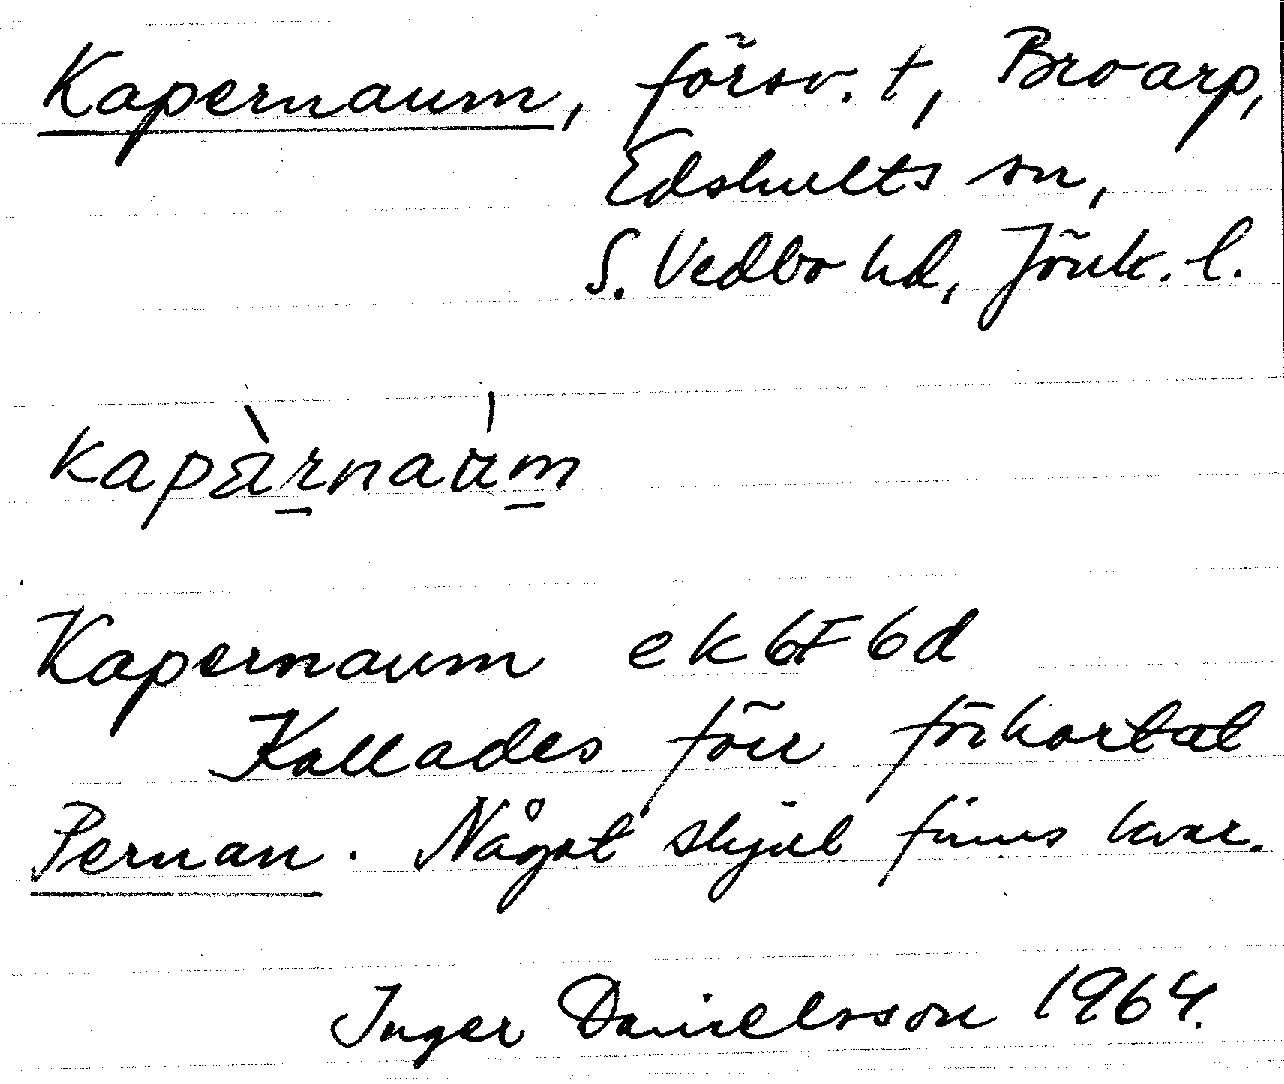 Kapernaum, försv. t, Broarp,
Edshults sn,
S. Vedbo hd, Jönk. l.
kapàrnaúm
Kapernaum ek 6F 6d
Kallades förr förkortat
Pernan. Något skjul finns kvar.
Inger Danielsson 1964.